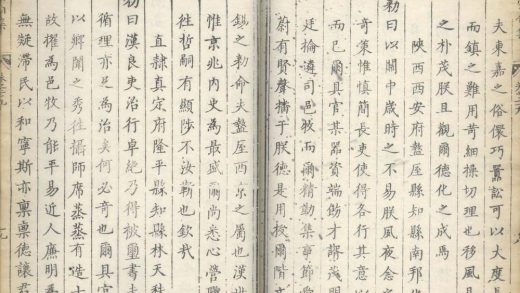 夫東嘉之俗儇巧囂訟可以大度長
而鎮之難用苛細操切理也移風易
之朴茂朕且觀德化之成焉
陝西西安府盩厔縣知縣南邦
勑曰以關中歲時之不易朕夙夜念
奇策惟慎簡長吏使得各行其意以
而已爾具官某器資端飭才諝茂明
廷掄遣司邑牧而爾精勤集事節
蔚有賢聲擂于朕德是用授爾階
錫之勑命夫盩厔西京之屬也漢世
惟京兆內史為最盛爾尚悉心營職
徃哲嗣有顯陟不汝靳也欽哉
直隸真定府隆平縣知縣林天
勑曰漢良吏治行卓絕乃得被璽書夫
循理亦足為治矣何必奇也爾具官
以鄉闈之秀徃攝師席蒸蒸有造士
故擢為邑牧乃能平易近人廉明
無疑滯民以和寧斯亦稟稟德讓君